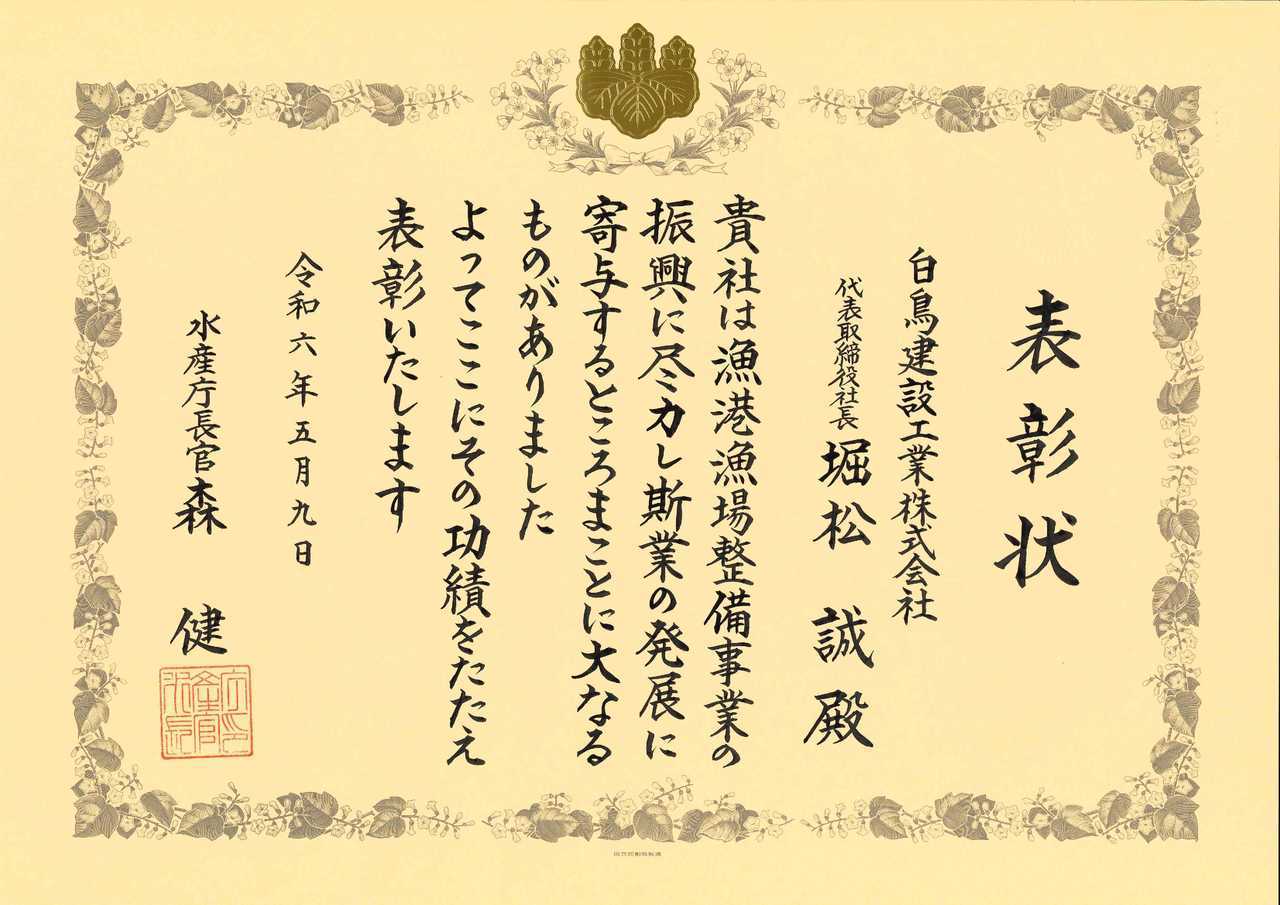 表彰状
白鳥建設工業株式会社
代表取締役社長 堀松 誠殿
貴社は漁港漁場整備事業の
振興に尽力し斯業の発展に
寄与するところまことに大なる
ものがありました
よってここにその功績をたたえ
表彰いたします
令和六年五月九日
水産庁長官 森 健